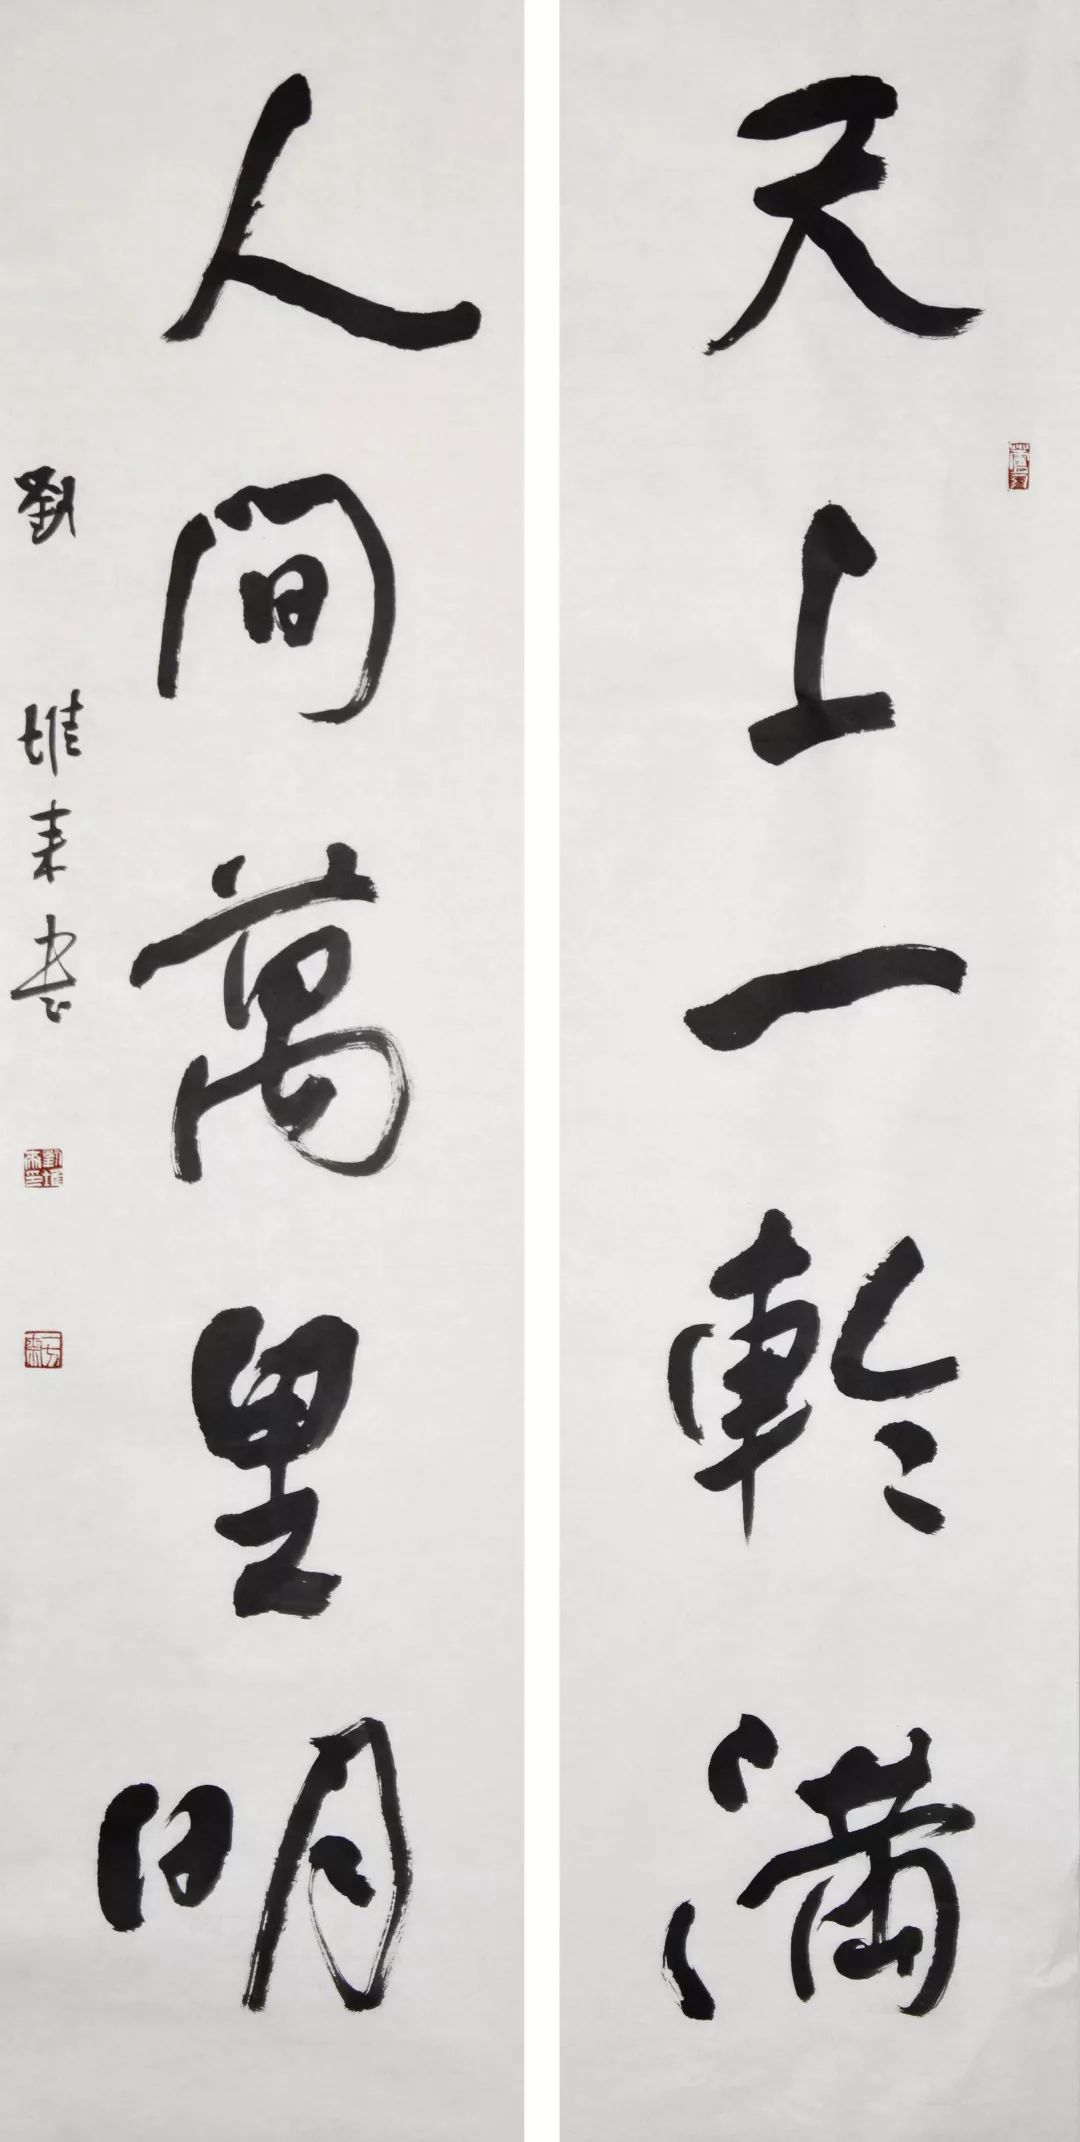 天上一輪滿
人間萬里明
劉堆来書